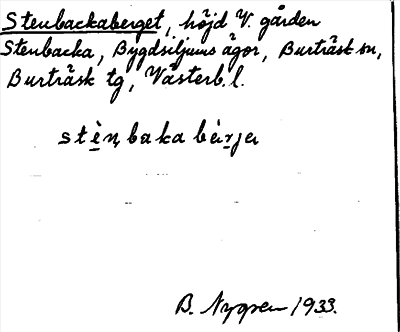 Stenbackaberget, höjd V. gården
Stenbacka, Bygdsiljums ägor, Burträsk sn,
Burträsk tg, Västerb. l.
stèṇbaka bèrjeʳ
B. Nygren 1933.